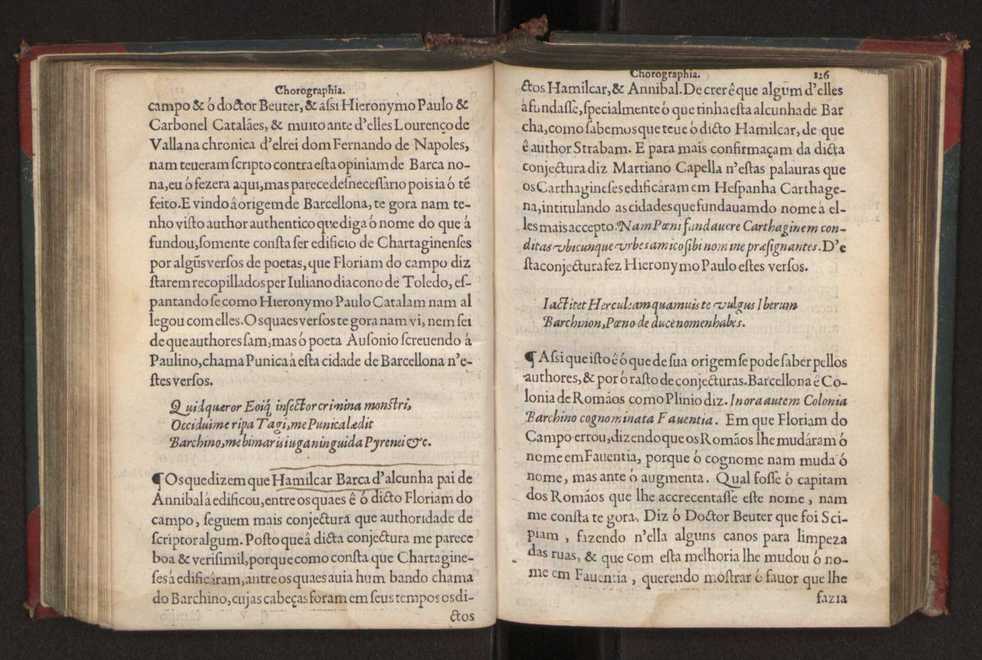 Chorographia.
campo & ó doctor Beuter, & assi Hieronymo Paulo &
Carbonel Catalães, & muito ante d'elles Lourenço de
Valla na chronica d'elrei dom Fernando de Napoles,
nam teueram scripto contra esta opiniam de Barca no-
na, eu ó fezera aqui, mas parece desnecessario pois ia ó tē
feito. E vindo â origem de Barcellona, te gora nam te-
nho visto author authentico que diga ó nome do que â
fundou, somente consta ser edificio de Chartaginenses
por algũs versos de poetas, que Floriam do campo diz
starem recopillados per Iuliano diacono de Toledo, es-
pantando se como Hieronymo Paulo Catalam nam al
legou com elles. Os quaes versos te gora nam vi, nem sei
de que authores sam, mas ó poeta Ausonio screuendo â
Paulino, chama Punica â esta cidade de Barcellona n'e-
stes versos.
Quid queror Eoiq; insector crimina monstri,
Occidui me ripa Tagi, me Punica lædit
Barchino, me bimaris iuga ninguida Pyrenei &c.
¶ Os que dizem que Hamilcar Barca d'alcunha pai de
Annibal â edificou, entre os quaes ê ó dicto Floriam do
campo, seguem mais conjectura que authoridade de
scriptor algum. Posto que â dicta conjectura me parece
boa & verisimil, porque como consta que Chartagine-
ses â edificâram, antre os quaes auia hum bando chama
do Barchino, cujas cabeças foram em seus tempos os di-
ctos
Chorographia. 126
ctos Hamilcar, & Annibal. De crer ê que algum d'elles
â fundasse, specialmente ó que tinha esta alcunha de Bar
cha, como sabemos que teue ó dicto Hamilcar, de que
ê author Strabam. E para mais confirmaçam da dicta
conjectura diz Martiano Capella n'estas palauras que
os Carthagineses edificâram em Hespanha Carthage-
na, intitulando as cidades que fundauam do nome â el-
les mais accepto. Nam Pœni fundauere Carthaginem con-
ditas vbicunque vrbes amico sibi nomine præsignantes. D'e
sta conjectura fez Hieronymo Paulo estes versos.
Iactitet Herculeam quamuis te vulgus Iberum
Barchinon, Pœno de duce nomen habes.
¶ Assi que isto ê ó que de sua origem se pode saber pellos
authores, & por ó rasto de conjecturas. Barcellona ê Co-
lonia de Romãos como Plinio diz. In ora autem Colonia
Barchino cognominata Fauentia. Em que Floriam do
Campo errou, dizendo que os Romãos lhe mudâram ó
nome em Fauentia, porque ó cognome nam muda ó
nome, mas ante ó augmenta. Qual fosse ó capitam
dos Romãos que lhe accrecentasse este nome, nam
me consta te gora. Diz ó Doctor Beuter que foi Sci-
piam, fazendo n'ella alguns canos para limpeza
das ruas, & que com esta melhoria lhe mudou ó no-
me em Fauentia, querendo mostrar ó fauor que lhe
fazia